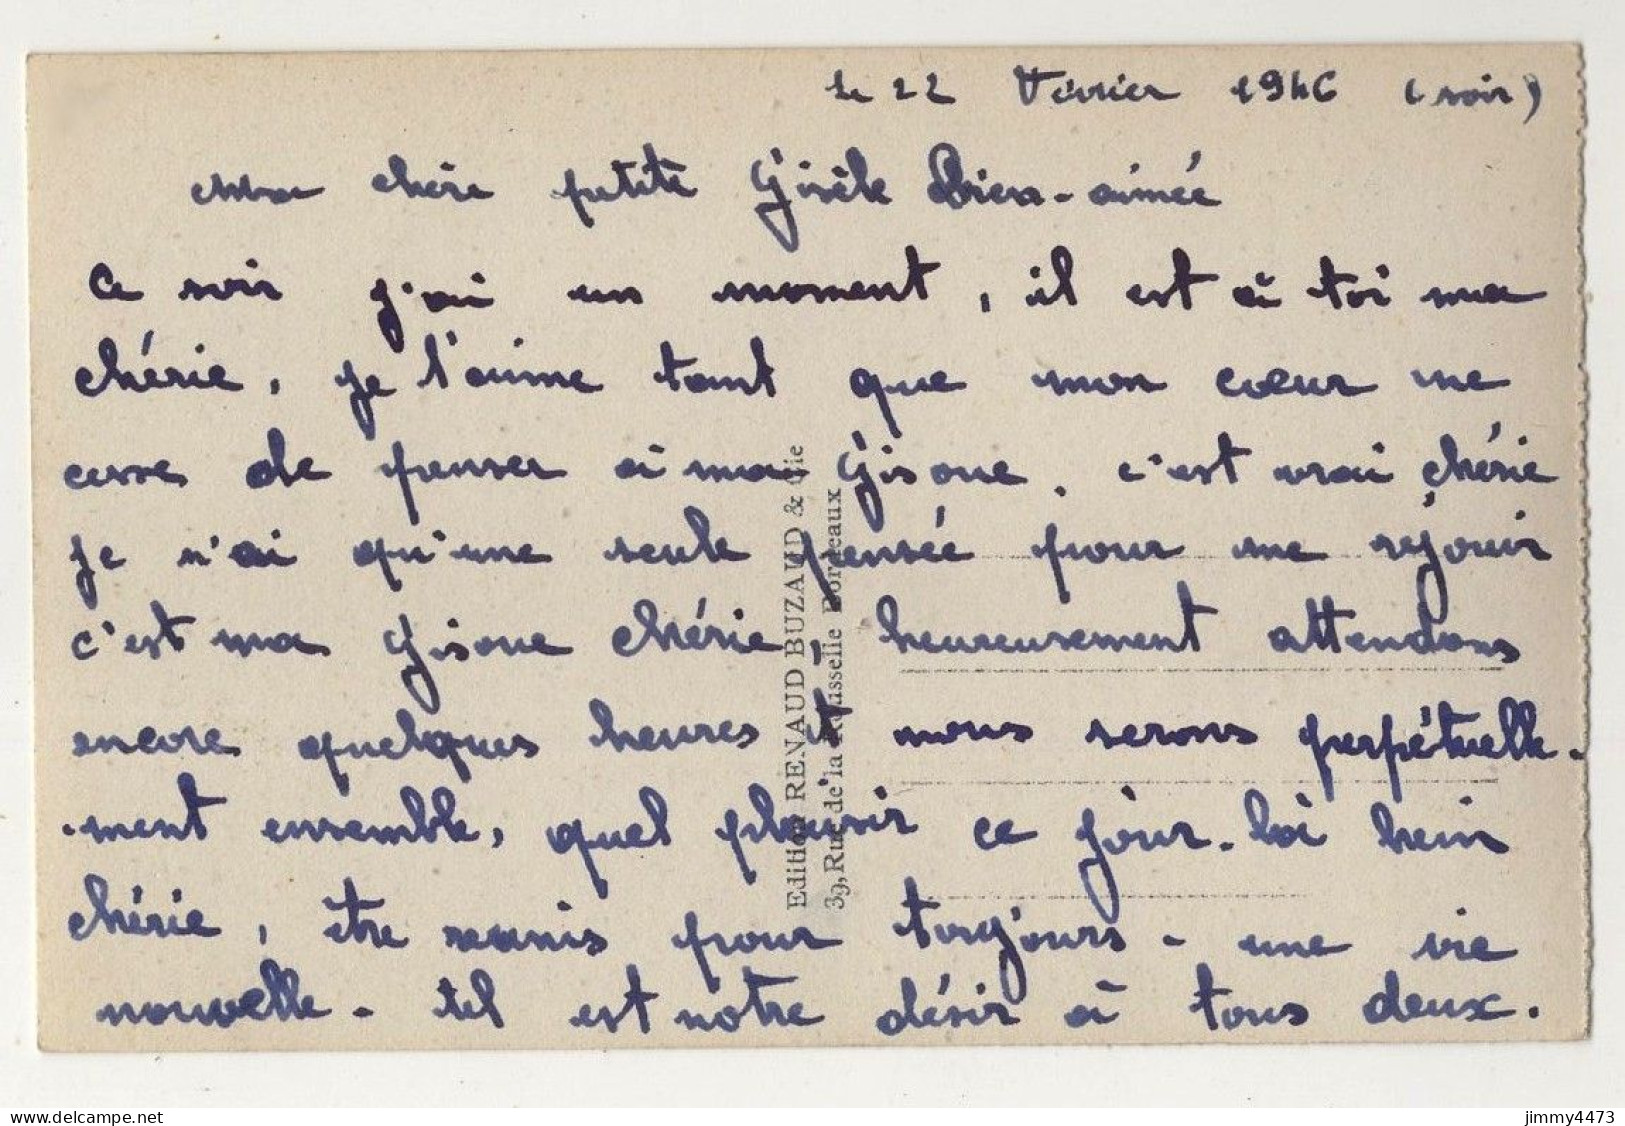 Le 22 Février 1946 (soir)
Ma chère petite Gisèle Bien-aimée
Ce soir j'ai un moment, il est à toi ma
chérie, je t'aime tant que mon cœur ne
cesse de penser à ma Gisoue. c'est vrai chérie
je n'ai qu'une seule pensée pour me réjouir
c'est ma Gisoue chérie, heureusement attendons
encore quelques heures et nous serons perpétuelle-
-ment ensemble, quel plaisir ce jour-là hein
chérie, être réunis pour toujours - une vie
nouvelle - tel est notre désir à tous deux.
Edition RENAUD BUZAUD & Cie
39, Rue de la Rousselle Bordeaux
jimmy4473
www.delcampe.net